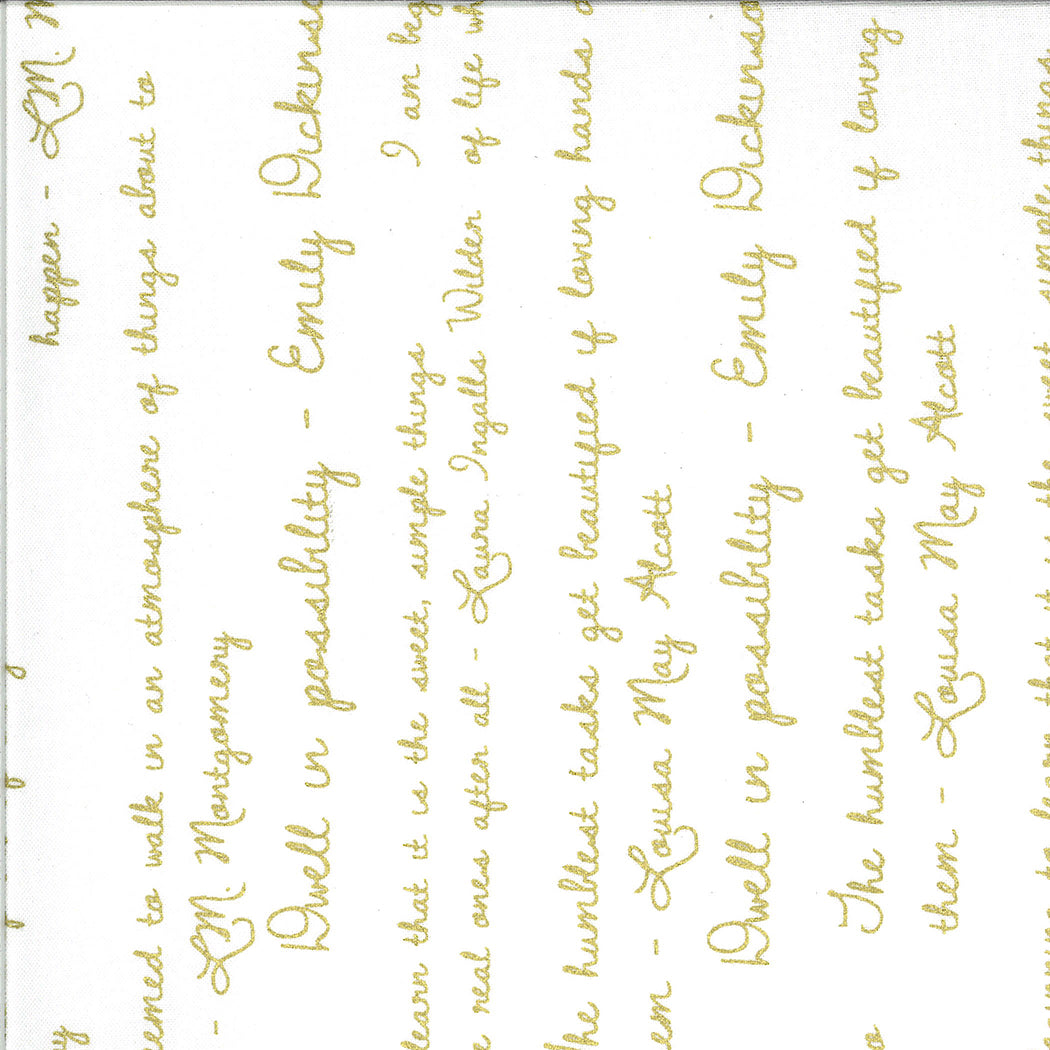 happen - L.M.
emed to walk in an atmosphere of things about to
- L.M. Montgomery
Dwell in possibility - Emily Dickinso
I am beg
learn that it is the sweet, simple things
of life wh
e real ones after all - Laura Ingalls Wilder
the humblest tasks get beautified if loving hands
em - Louisa May Alcott
Dwell in possibility - Emily Dickinso
The humblest tasks get beautified if loving
them - Louisa May Alcott
to learn that it is the sweet, simple things